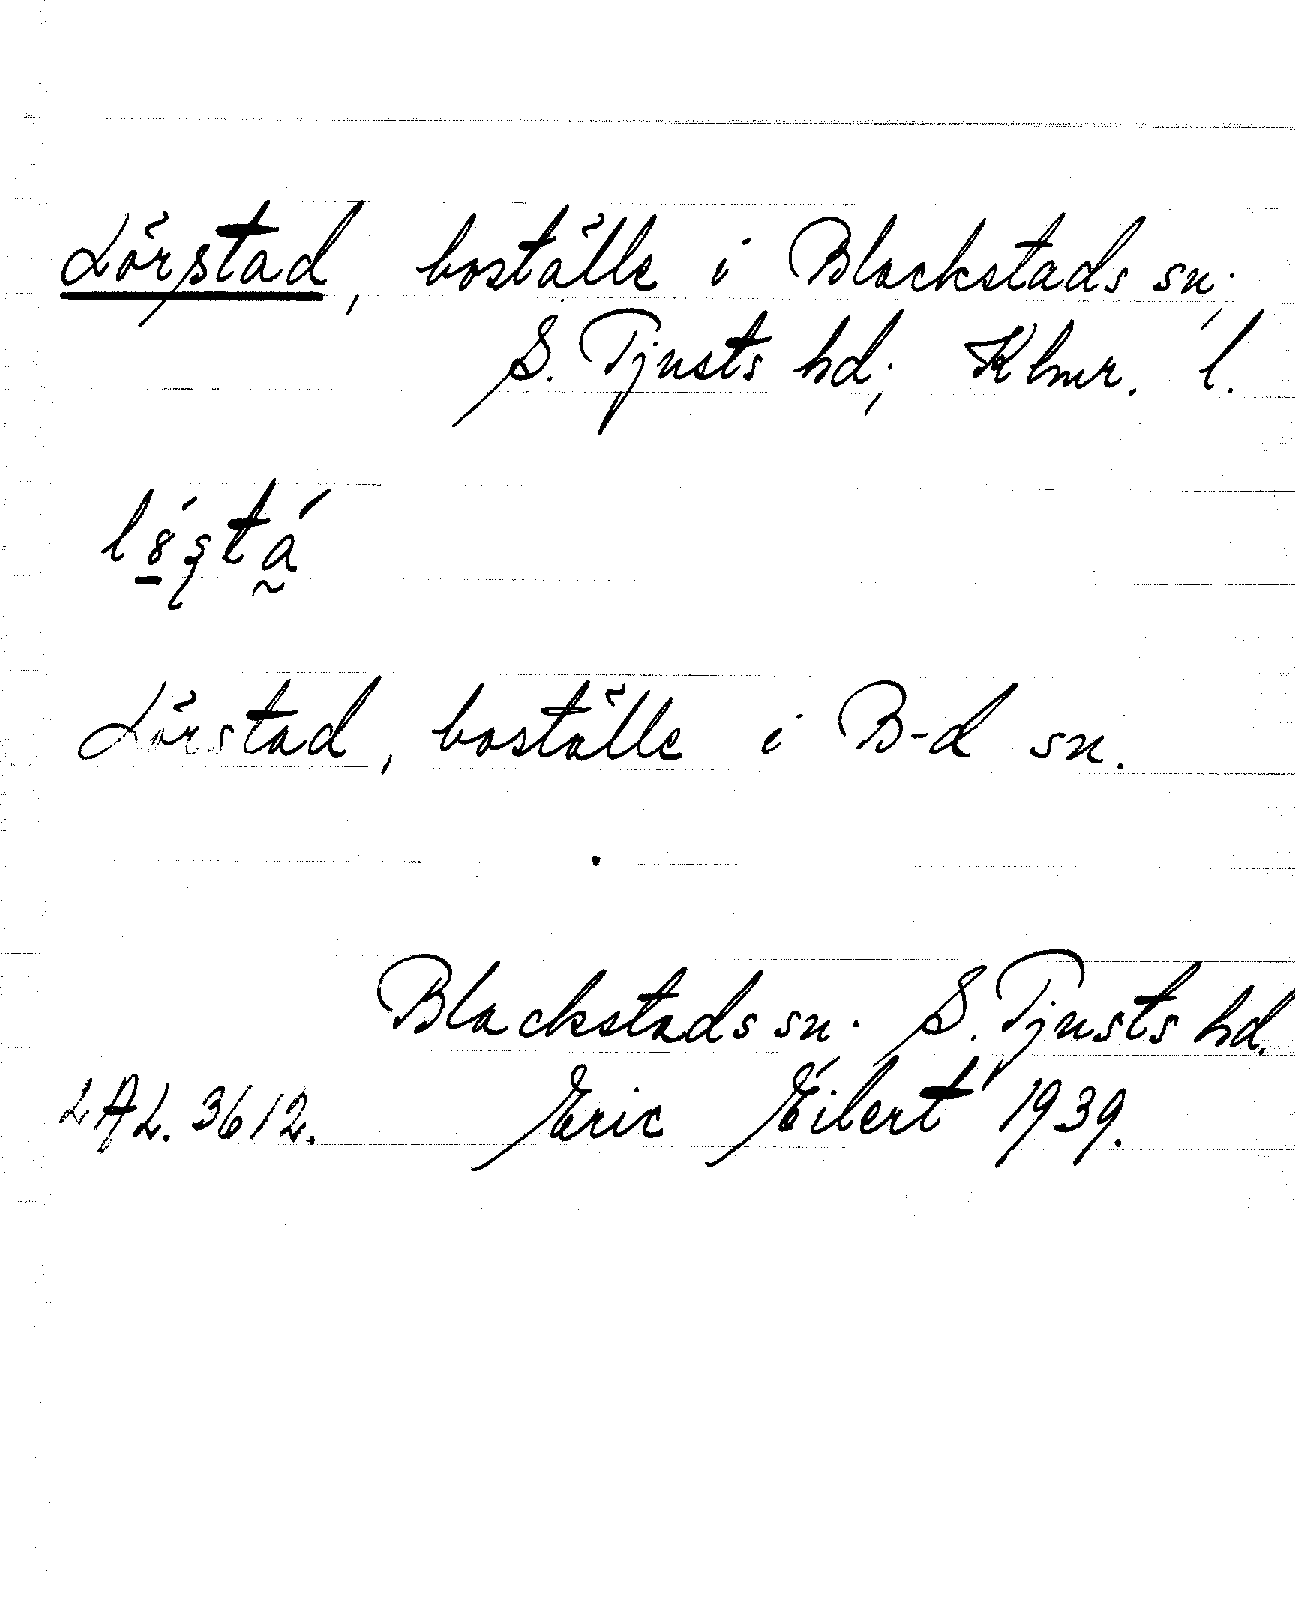 Lörstad, boställe i Blackstads sn;
S. Tjusts hd; Klmr. l.
Lörstad, boställe i B-d sn.
Blackstads sn. S. Tjusts hd.
LAL. 3612. Eric Eilert 1939.